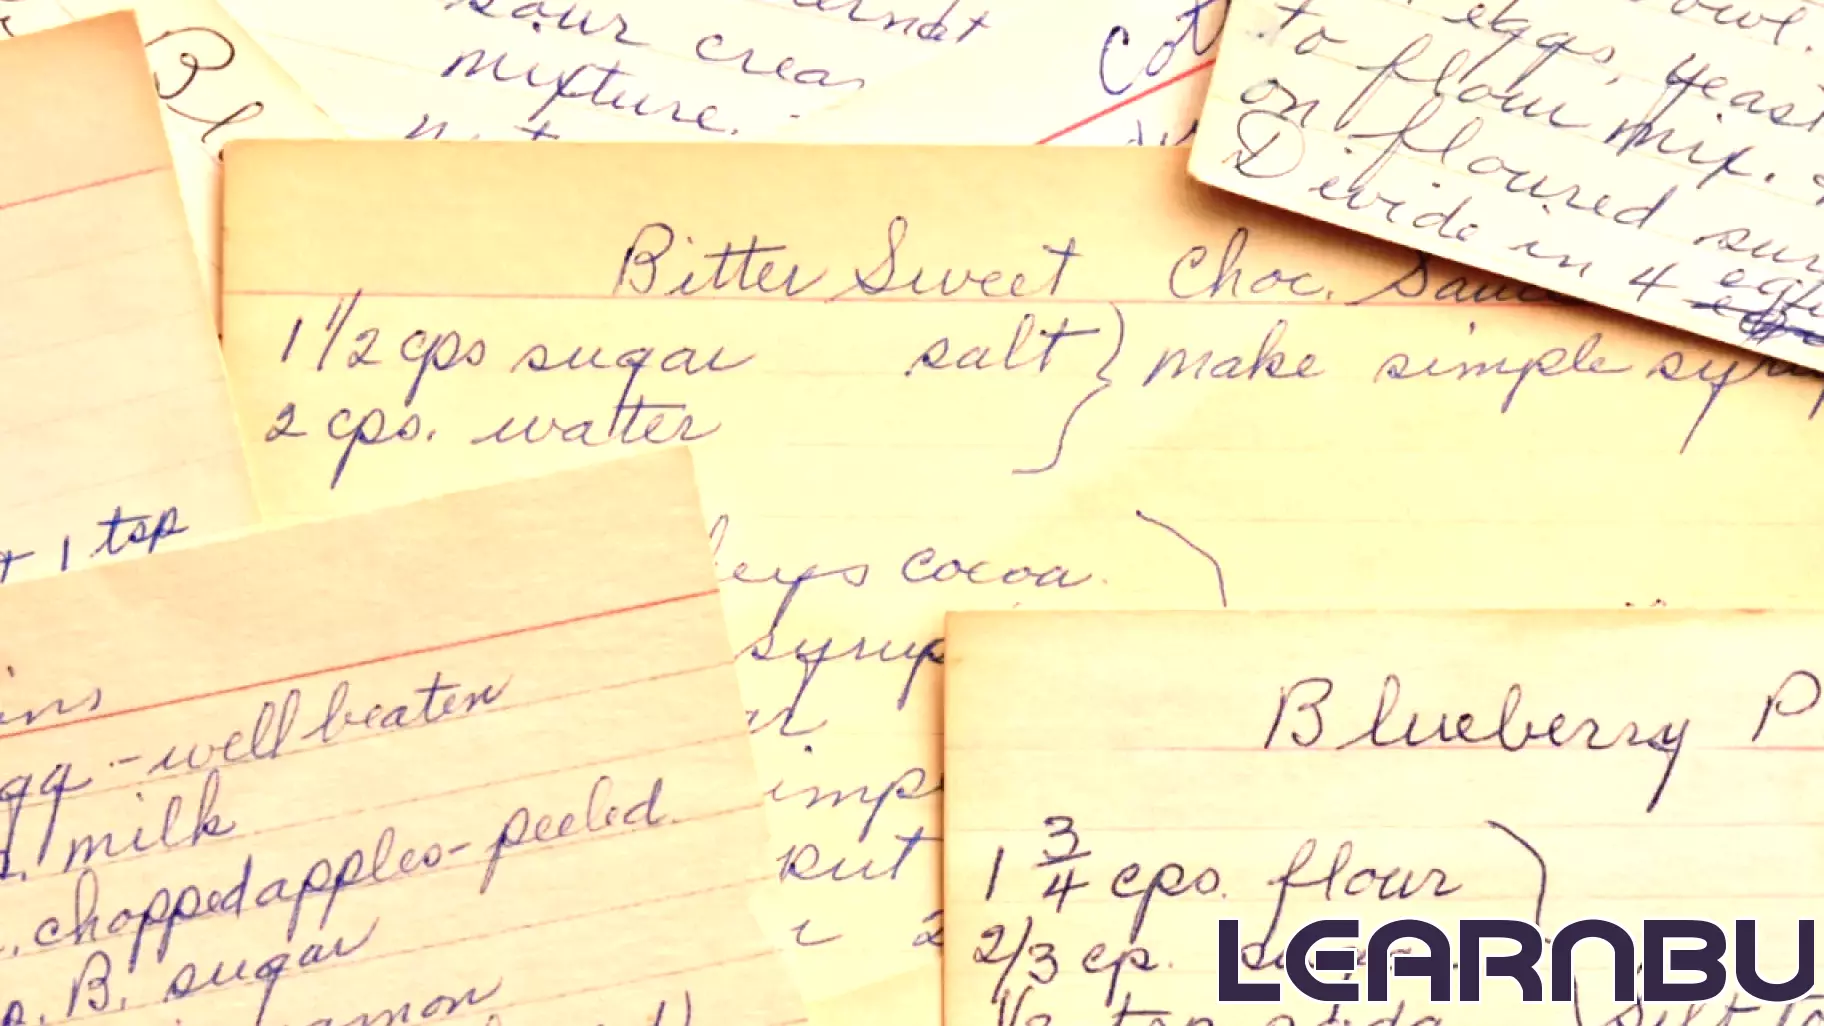 sour crea
mixture.
Bl
Cot
eggs, yeast
to flour mix.
on floured sur
Divide in 4
Bitter Sweet Choc. Sauce
1 1/2 cps sugar salt } make simple syrup
2 cps. water
+ 1 tsp
cocoa
syrup
put
2
well beaten
milk
chopped apples - peeled
B. sugar
Blueberry P
1 3/4 cps. flour
2/3 cp.
1/2 tsp soda
LEARNBU